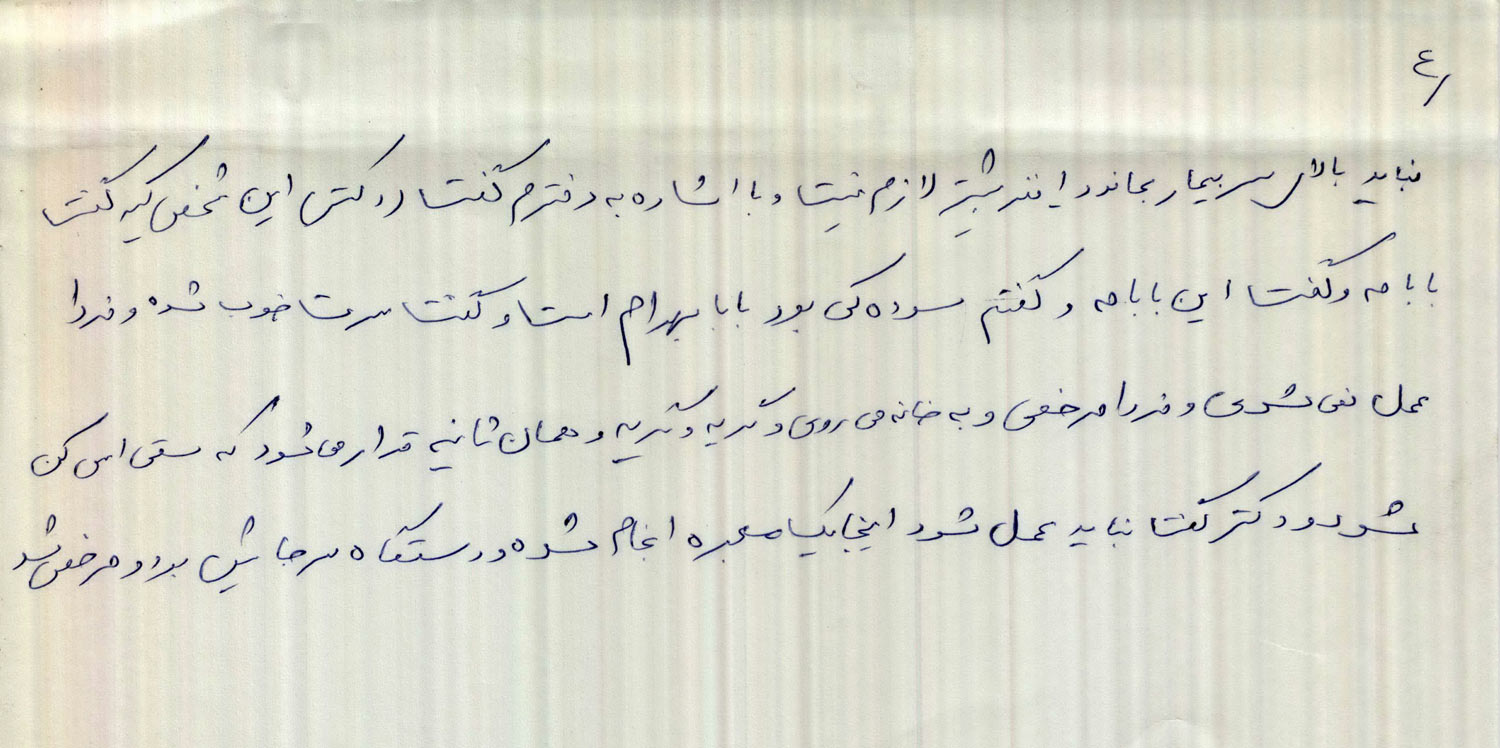 ۴
نباید بالای سر بیمار بماند اینقدر بیشتر لازم نیست و با اشاره به دخترم گفت این شخص کیه گفت
بابامه و گفت این بابامه و گفتم سوده کی بود بابا بهرام است و گفت سرت خوب شده و فردا
عمل نمی شوی و فردا مرخصی و به خانه می روی و گریه و گریه و همان ثانیه قرار می شود که سی تی اس کن
شود و دکتر گفت نباید عمل شود اینجا یک معجزه انجام شده و دستگاه سر جایش بود و مرخص شد